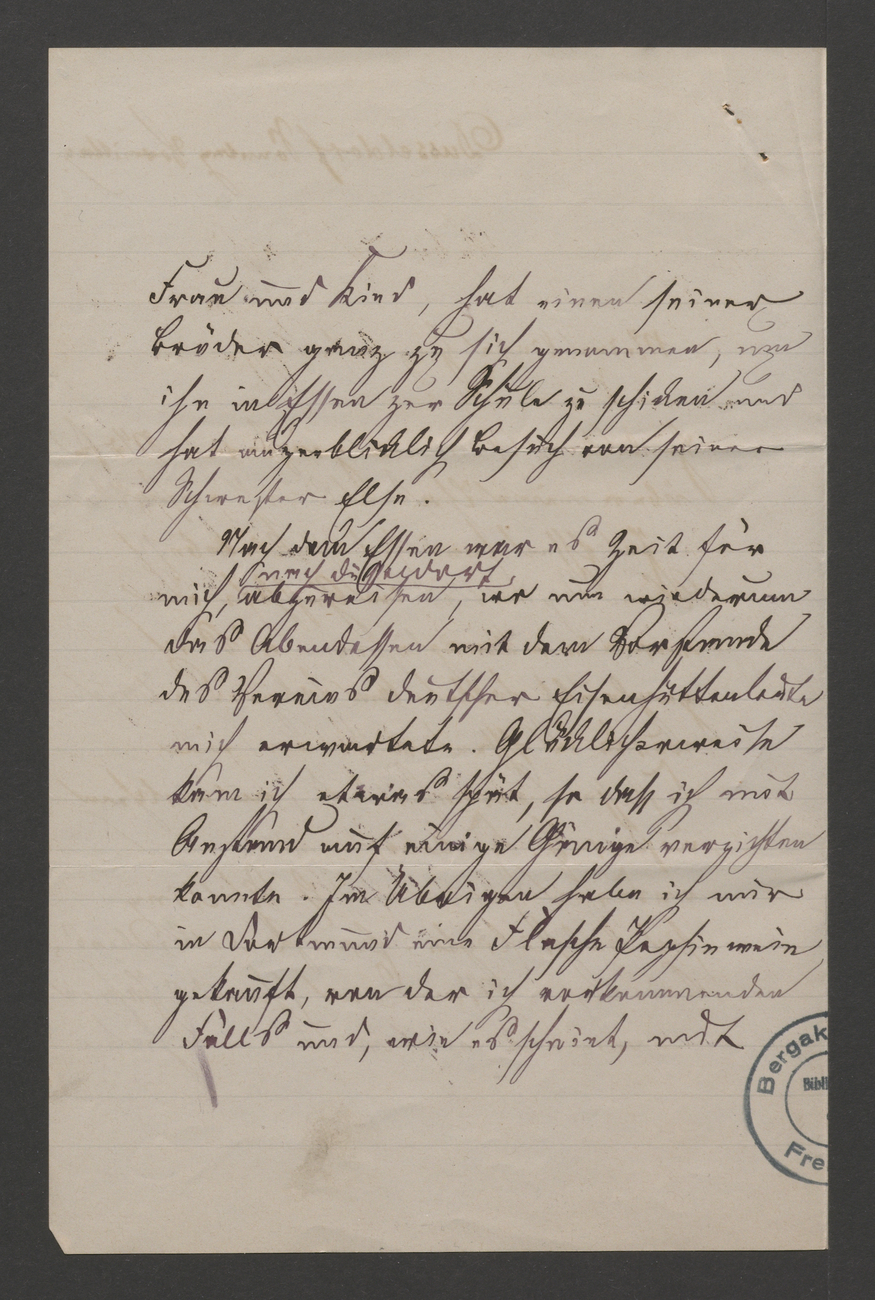 Frau und Kind, hat einen seiner
Brüder ganz zu sich genommen, um
ihn in Essen zur Schule zu schicken und
hat augenblicklich Besuch von seiner
Schwester Else.
Nach dem Essen war es Zeit für
nach Düsseldorf
mich, abzureisen, wo um wiederum
das Abendessen mit dem Vorstande
des Vereins deutscher Eisenhüttenleute
mich erwartete. Glücklicherweise
kam ich etwas spät, so dass ich mit
Anstand auf einige Gänge verzichten
konnte. Im Übrigen habe ich mir
in Dortmund eine Flasche Pepsinwein
gekauft, von der ich vorkommenden
Falls und, wie es scheint, mit
Bergak
Bibli
Fre